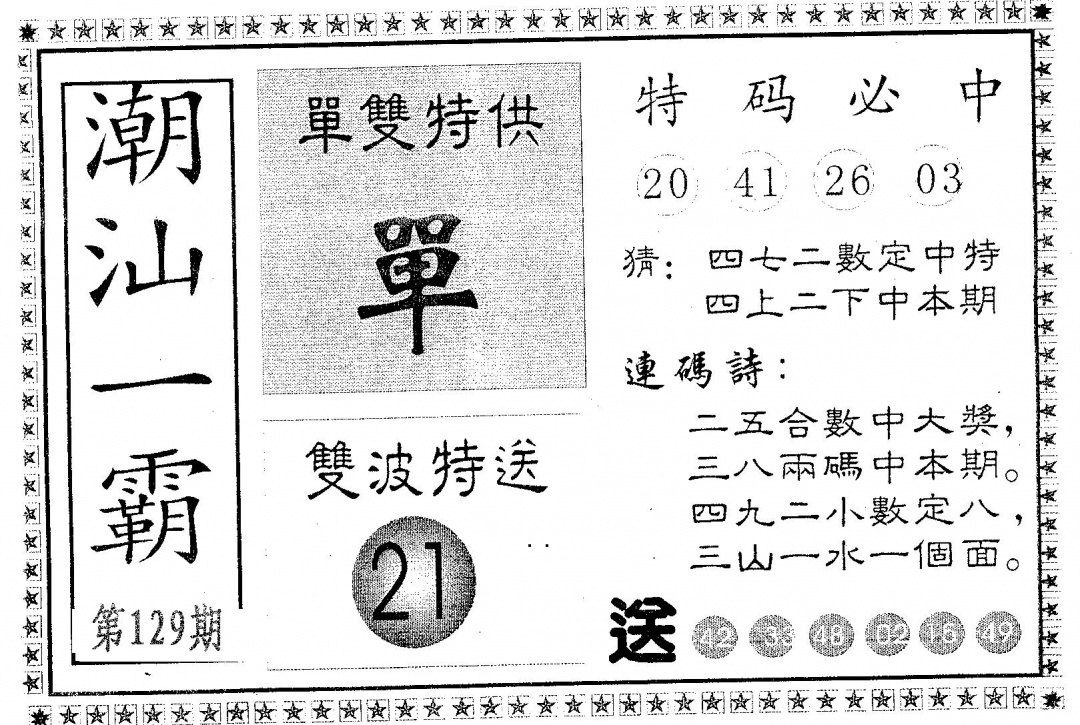 潮汕一霸
第129期
單雙特供
單
雙波特送
21
特码必中
20 41 26 03
猜：四七二數定中特
四上二下中本期
連碼詩：
二五合數中大獎，
三八兩碼中本期。
四九二小數定八，
三山一水一個面。
送 42 33 48 02 16 49